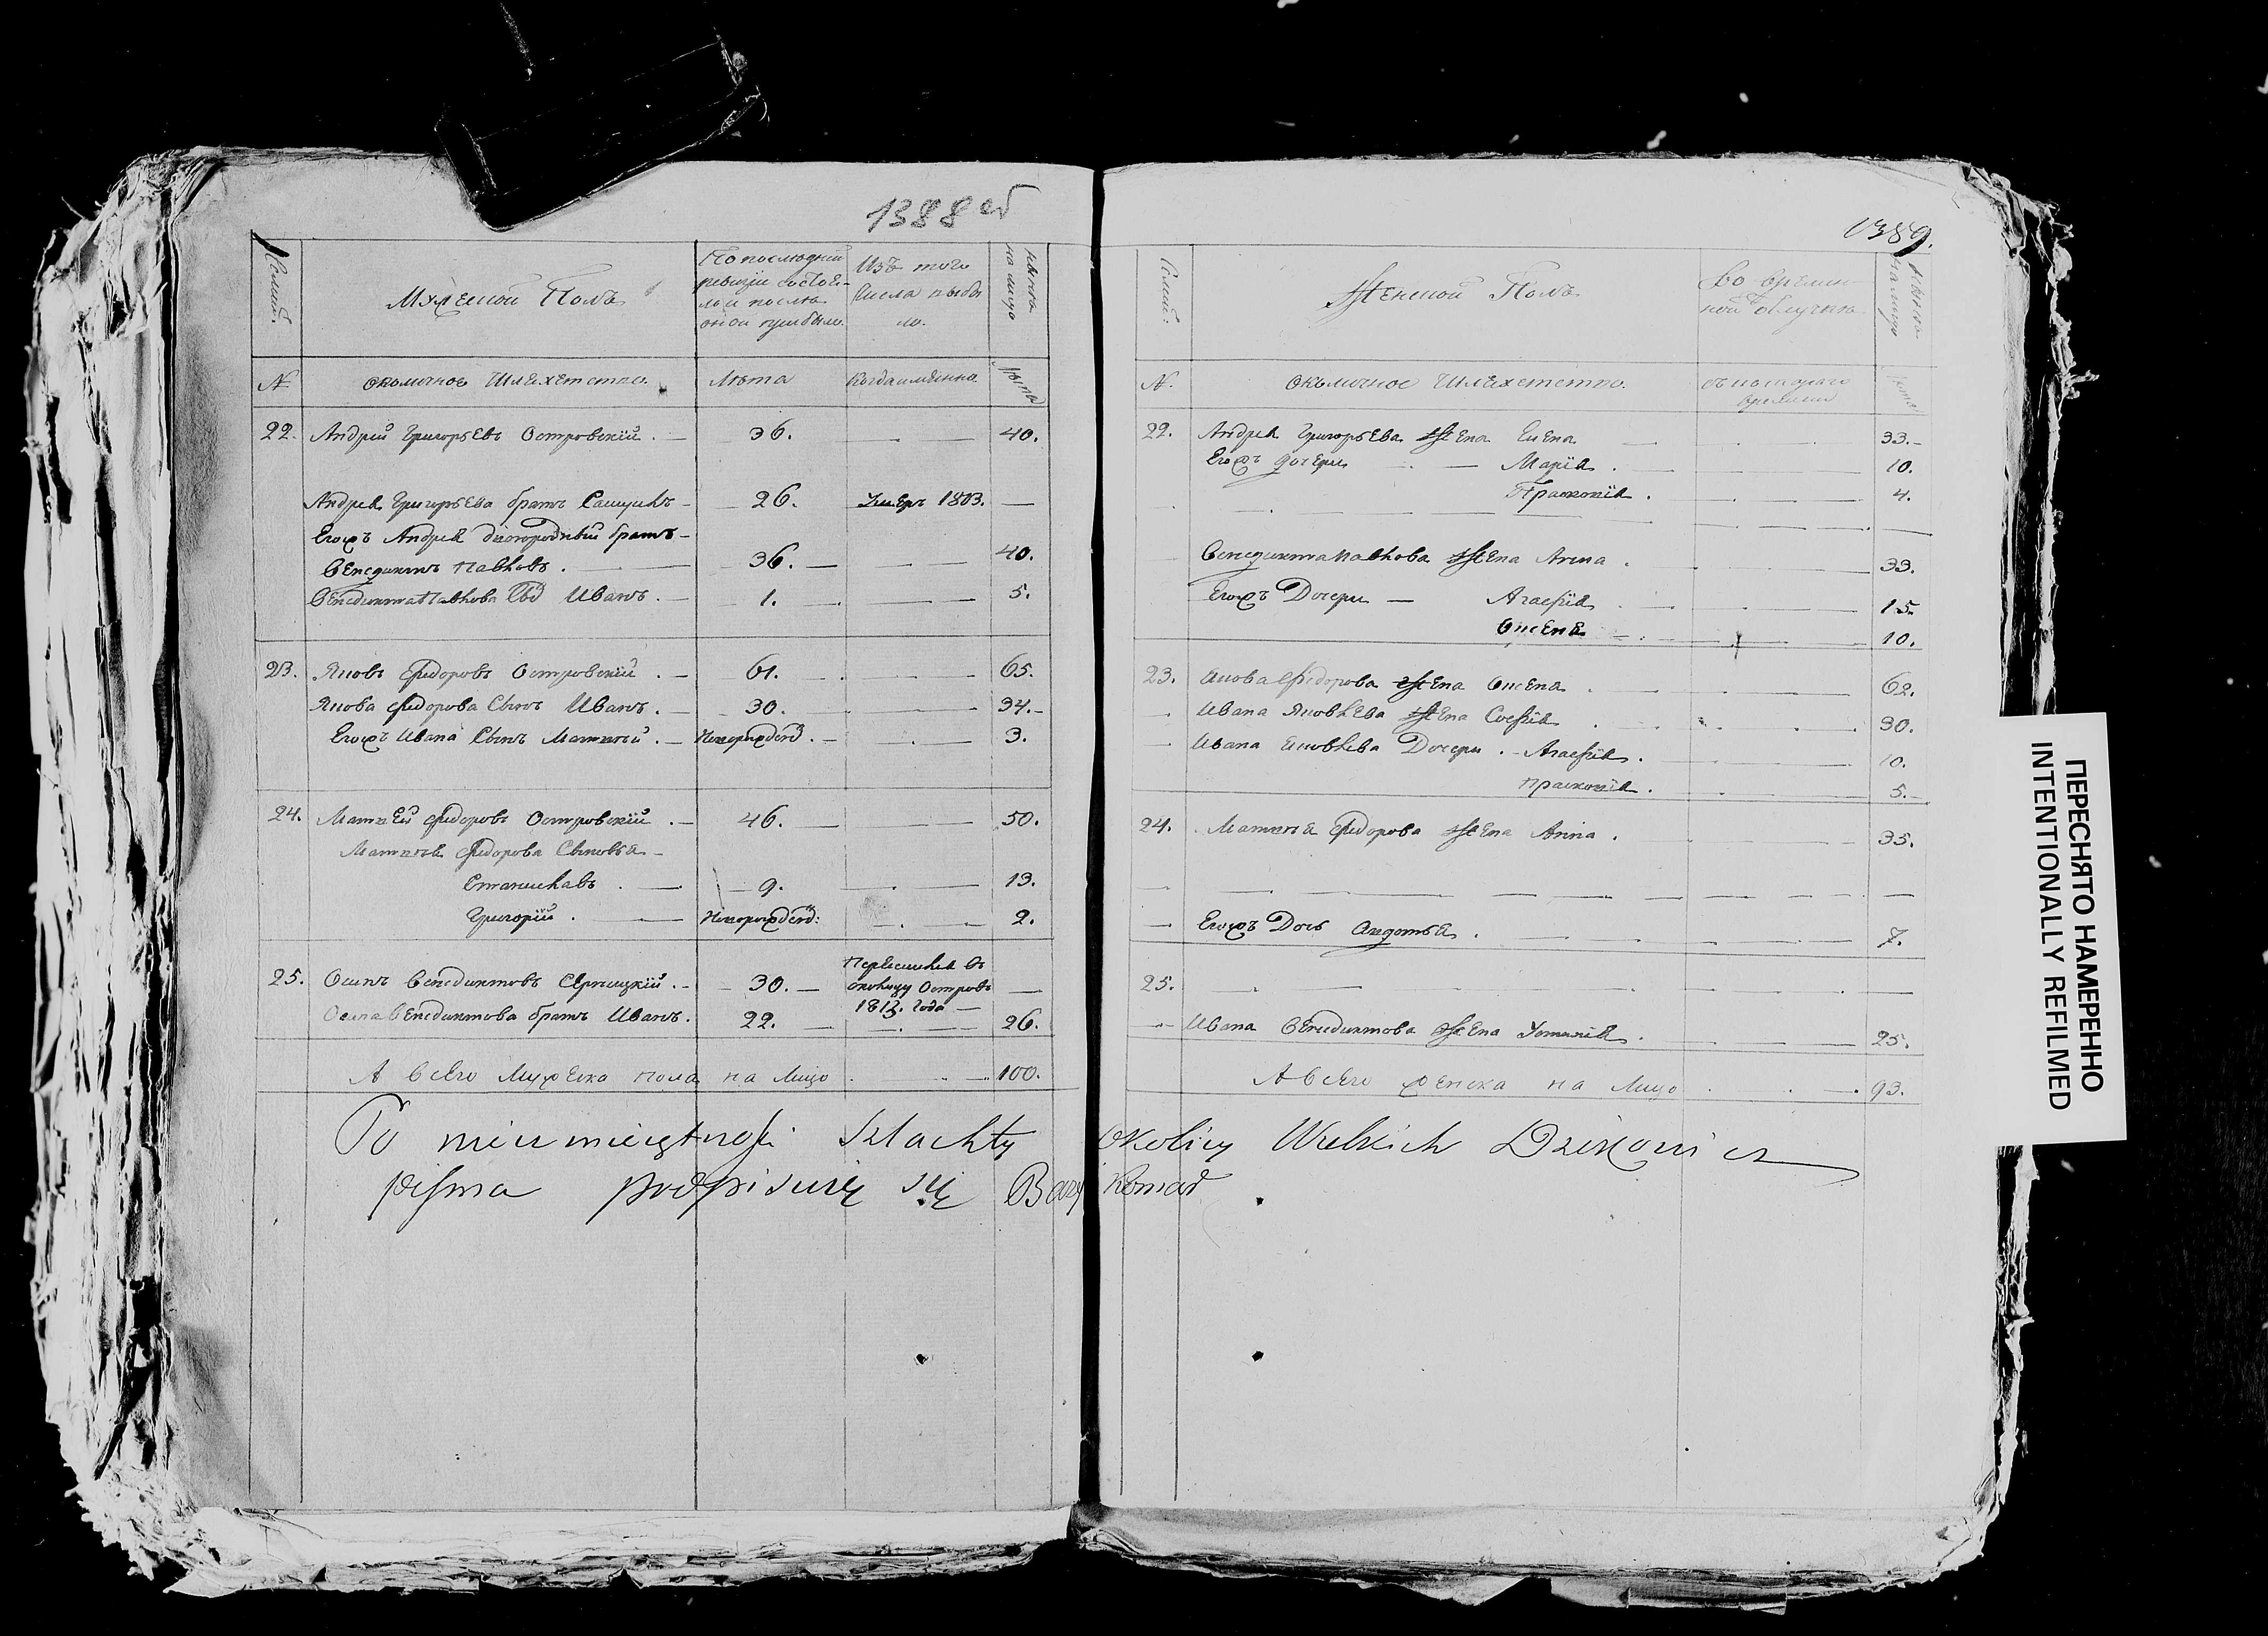 1388 об
Мужеской Полъ
По последней ревизіи состояло и после оной прибыло.
Изъ того числа выбыло.
Ныне на лицо
№
околичное Шляхетство.
Лѣта
Когда имянно
Лѣта
22. Андрей Григорьевъ Островскій. 36. 40.
Андрея Григорьева братъ 26. Умеръ 1813.
Егожъ Андрея двоюродный братъ
Венедиктъ Павловъ. 36. 40.
Венедикта Павлова Сынъ Иванъ. 1. 5.
23. Яковъ Федоровъ Островскій. 61. 65.
Якова Федорова Сынъ Иванъ. 30. 34.
Егожъ Ивана Сынъ Матвей. 3.
24. Матвей Федоровъ Островскій. 46. 50.
Матвея Федорова Сыновья
Станиславъ. 9. 13.
Григорій. 2.
25. Осипъ Венедиктовъ 30. Переслился въ околицу Островъ 1813. года
Осипа Венедиктова братъ Иванъ. 22. 26.
А всего Мужеска пола на Лицо 100.
1389.
Женской Полъ
Во временной отлучке
Ныне на лицо
№.
Околичное Шляхетство.
съ котораго времени
Лѣта
22. Андрея Григорьева Жена Елена 33.
Егожъ дочери Марія. 10.
Прасковія. 4.
Венедикта Павлова Жена Анна. 33.
Егожъ Дочери Агафія 15.
Оксеня 10.
23. Якова Федорова Жена Оксеня. 62.
Ивана Яковлева Жена Софія 30.
Ивана Яковлева Дочери. Агафія. 10.
Прасковія. 5.
24. Матвея Федорова Жена Анна. 35.
Егожъ Дочь Авдотья. 7.
25.
Ивана Венедиктова Жена Устинія. 25.
А всего женска на Лицо 93.
Po nieumieiętnosci Szlachty okolicy Wielkich Dzikowicz
pisma podpisuię się Bazyli Komar
ПЕРЕСНЯТО НАМЕРЕННО
INTENTIONALLY REFILMED